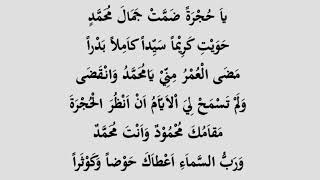 ياَ حُجْرَةً ضَمَّتْ جَمَالَ مُحَمَّدٍ
حَوَيْتِ كَرِيْماً سَيِّداً كاَمِلاً بَدْراً
مَضَى الْعُمْرُ مِنِّيْ يَامُحَمَّدُ وَانْقَضَى
وَلَمْ تَسْمَحْ لِيَ اْلاَيَّامُ اَنْ اَنْظُرَ الْحُجْرَةَ
مَقاَمُكَ مَحْمُوْدٌ وَاَنْتَ مُحَمَّدٌ
وَرَبُّ السَّمآءِ اَعْطاَكَ حَوْضاً وَكَوْثَراً